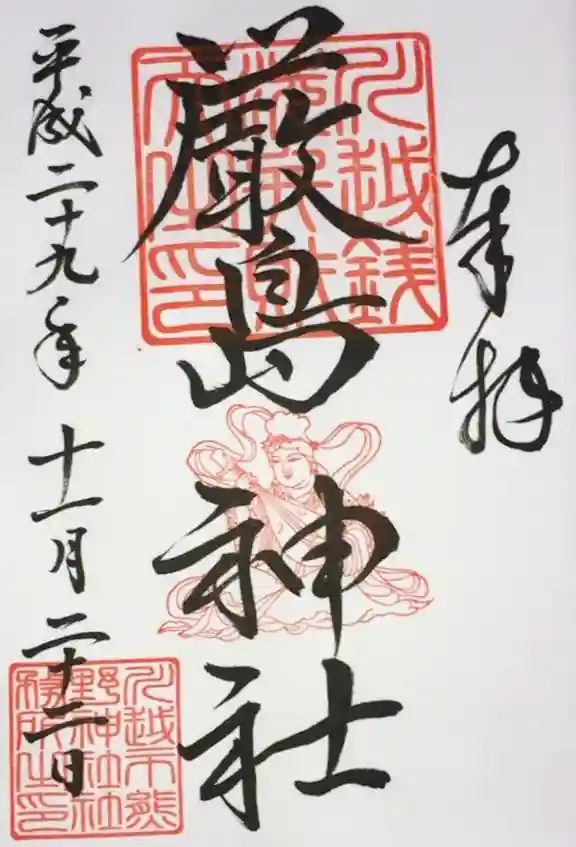 奉拝
川越銭
洗弁財
天之印
厳島神社
平成二十九年十一月二十二日
川越市熊
野神社社
務所之印